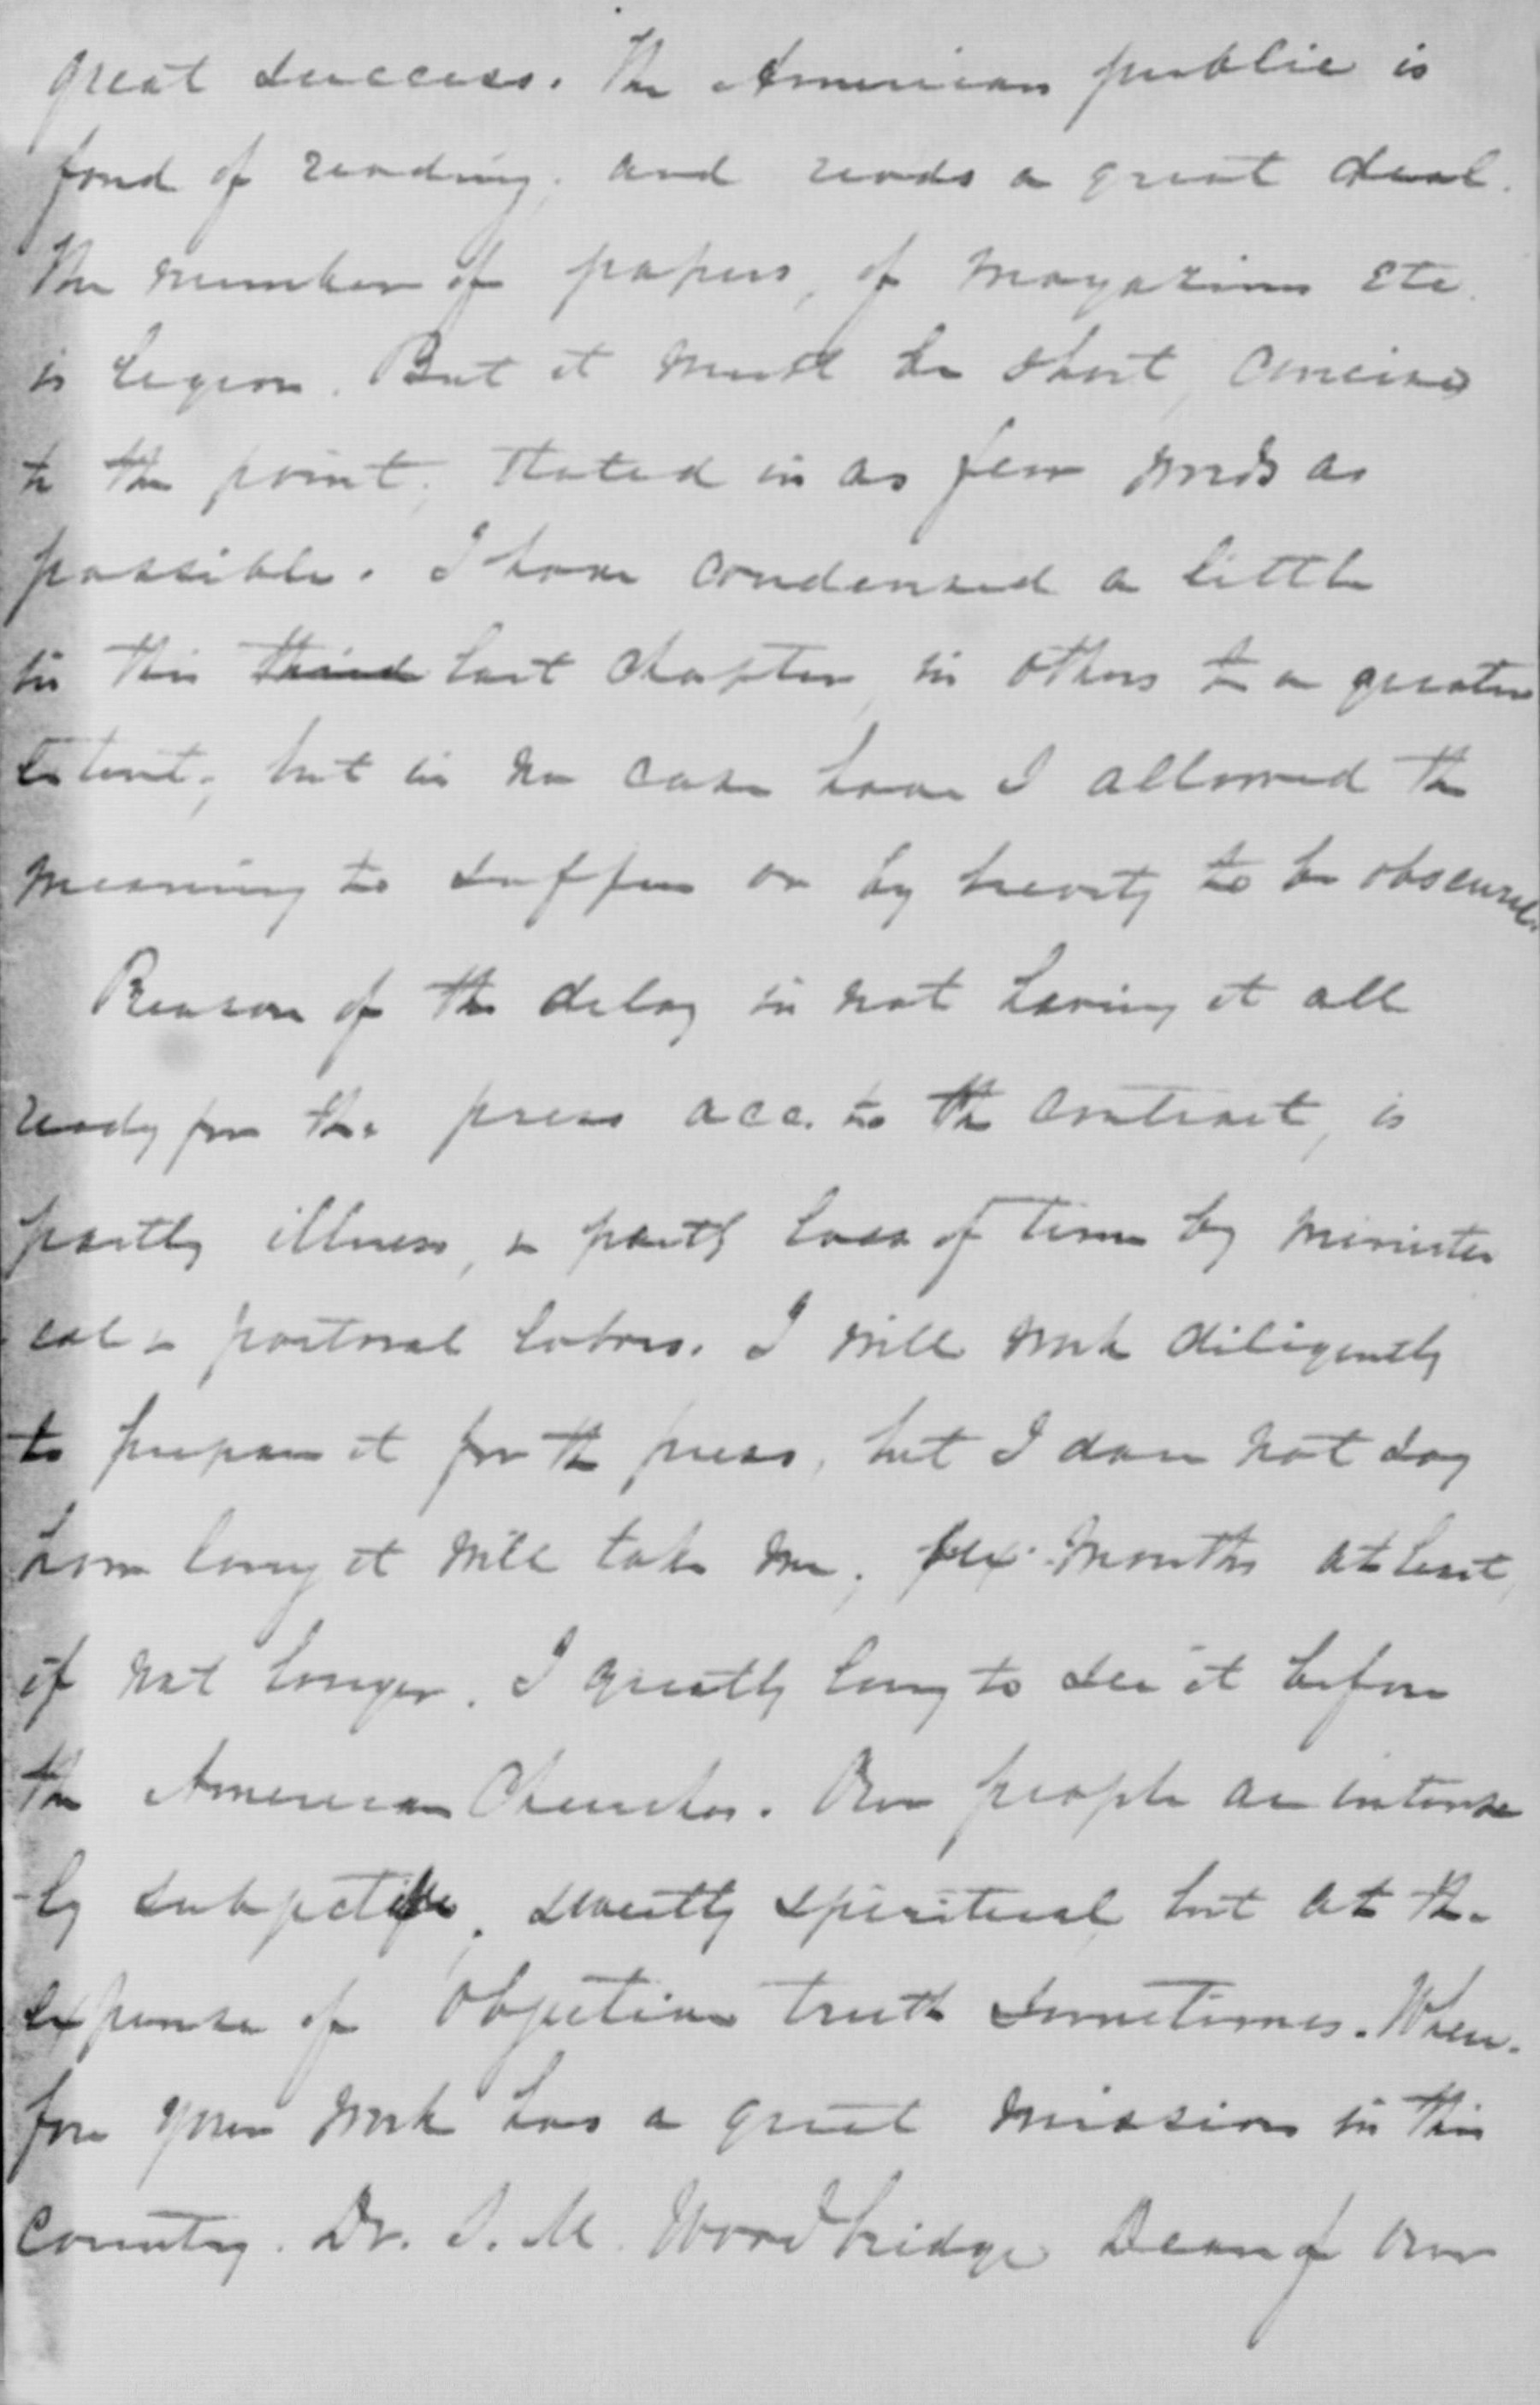 great success. The American public is
fond of reading, and reads a great deal.
The number of papers, of magazines etc.
is legion. But it must be short, concise
to the point, stated in as few words as
possible. I have condensed a little
in this third last chapter, in others to a greater
extent, but in no case have I allowed the
meaning to suffer or by brevity to be obscured.
Reason of the delay in not having it all
ready for the press acc. to the contract, is
partly illness, & partly loss of time by minister
ial & pastoral labors. I will work diligently
to prepare it for the press, but I dare not say
how long it will take me, six months at least,
if not longer. I greatly long to see it before
the American Churches. Our people are intense
-ly subjective, devoutly spiritual, but at the
expense of objective truth sometimes. Where-
fore your work has a great mission in this
country. Dr. S. M. Woodbridge Dean of our